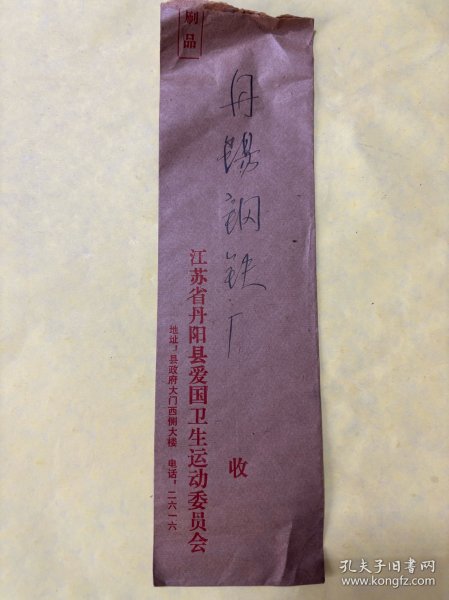 刷品
丹阳钢铁厂
收
江苏省丹阳县爱国卫生运动委员会
地址：县政府大门西侧大楼 电话：二六一六
孔夫子旧书网
www.kongfz.com